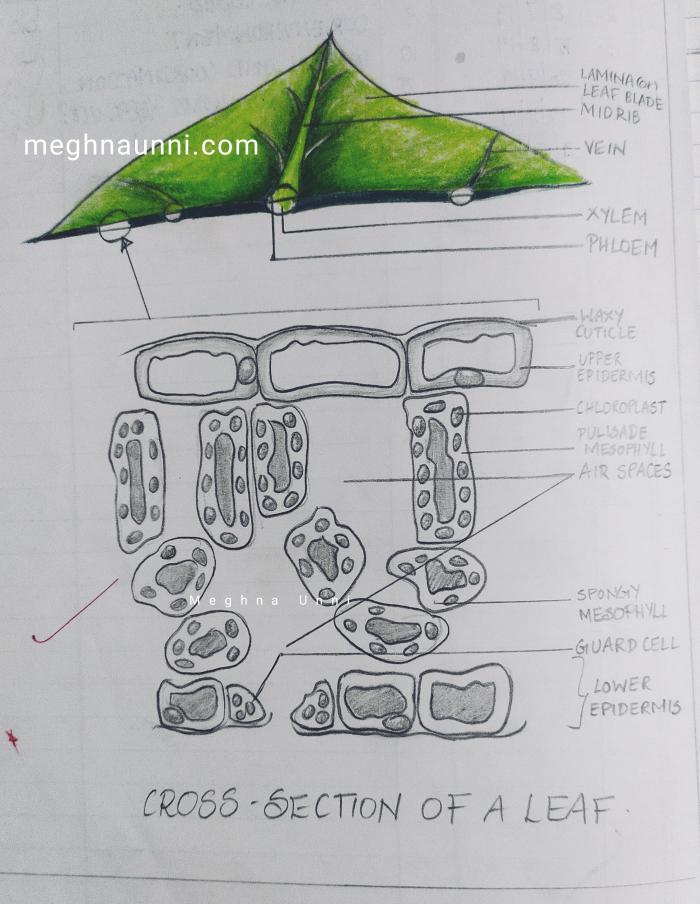 LAMINA (or)
LEAF BLADE
MIDRIB
meghnaunni.com
VEIN
XYLEM
PHLOEM
WAXY
CUTICLE
UPPER
EPIDERMIS
CHLOROPLAST
PULISADE
MESOPHYLL
AIR SPACES
SPONGY
MESOPHYLL
Meghna Unni
GUARD CELL
LOWER
EPIDERMIS
CROSS-SECTION OF A LEAF.